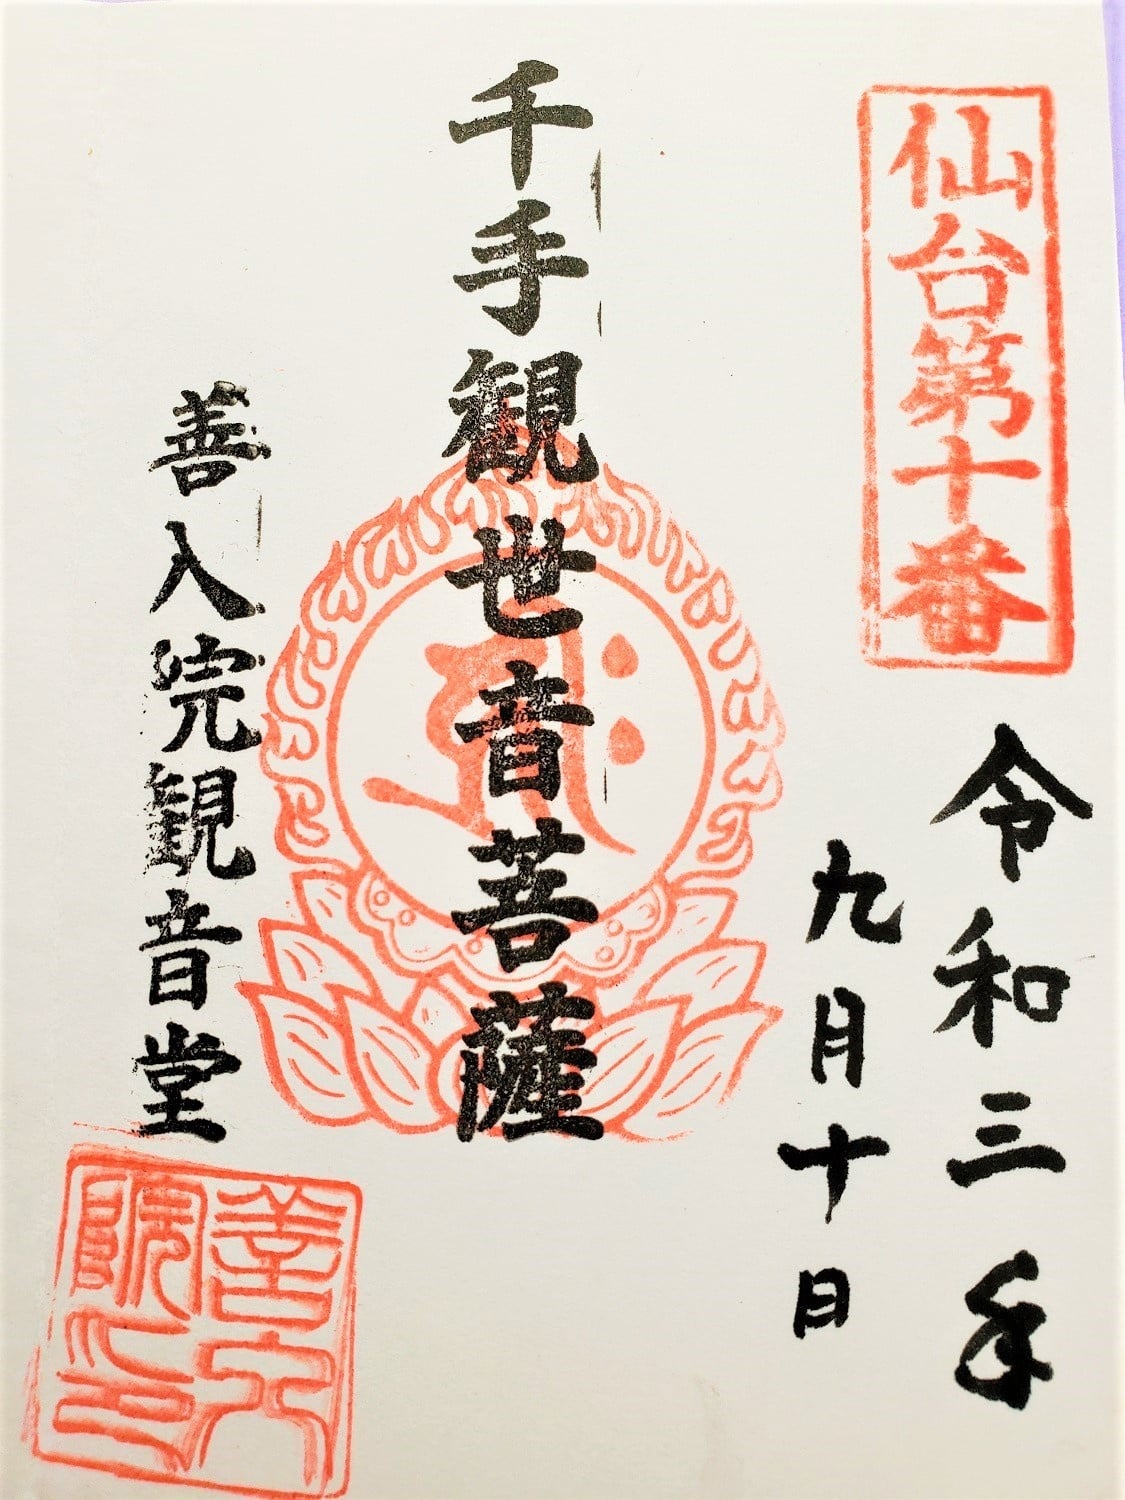 仙台第十番
令和三年
九月十日
千手観世音菩薩
善入院観音堂
善入
院印